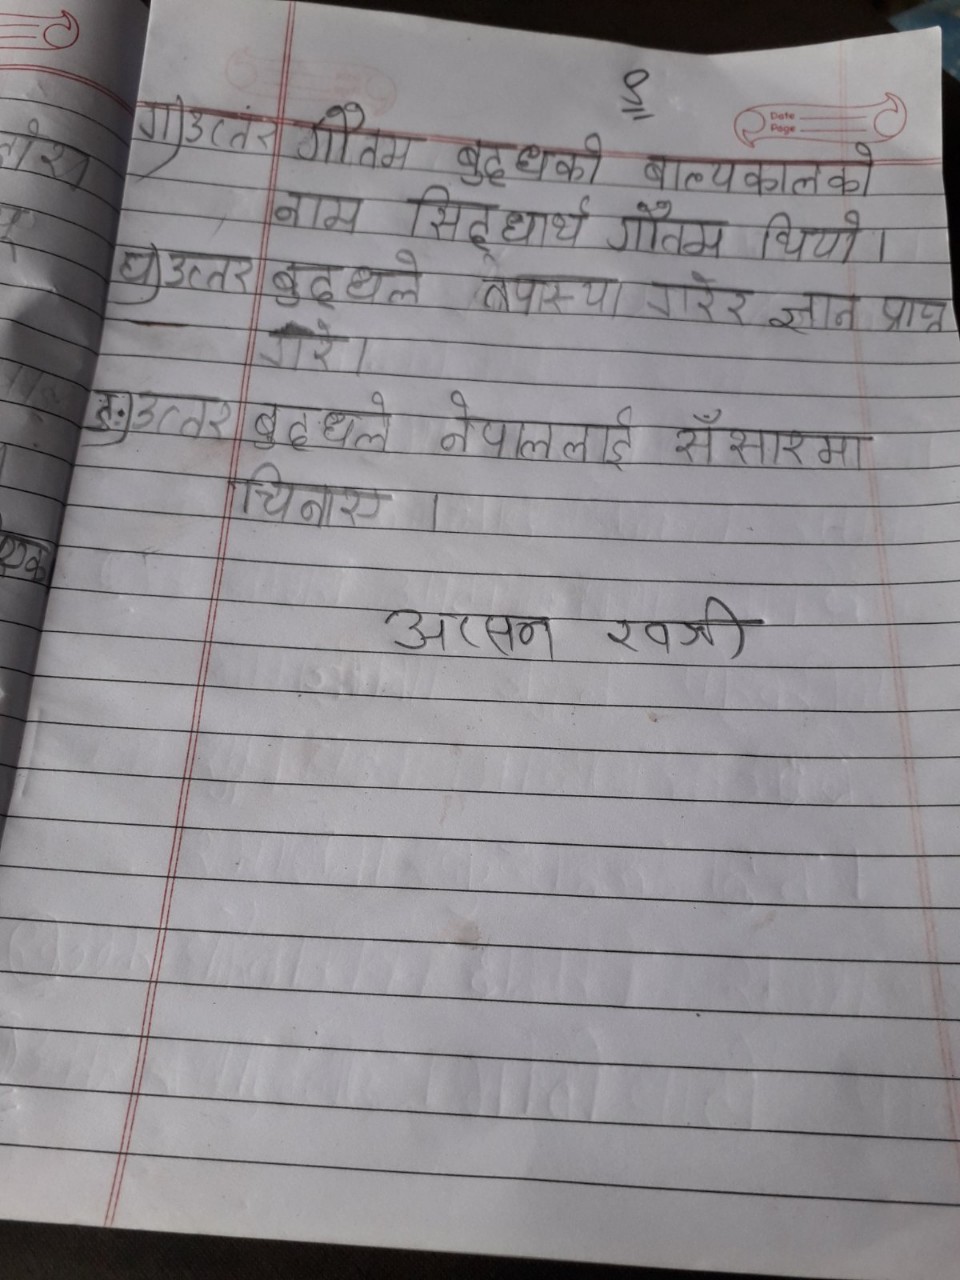 Date
Page
ग) उत्तर गौतम बुद्धको बाल्यकालको
नाम सिद्धार्थ गौतम थियो ।
घ) उत्तर बुद्धले तपस्या गरेर ज्ञान प्राप्त
गरे ।
ङ) उत्तर बुद्धले नेपाललाई सँसारमा
चिनाए ।